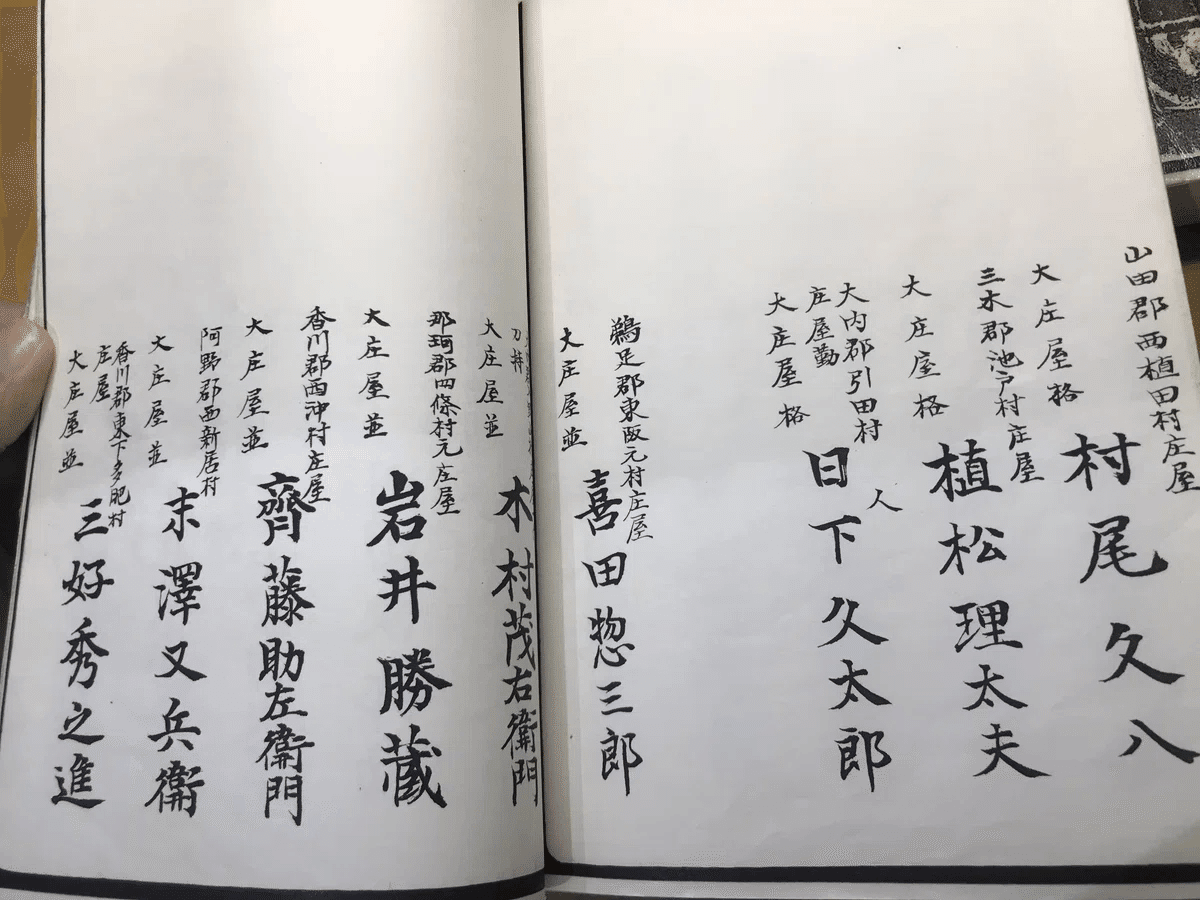 山田郡西植田村庄屋
大庄屋格
村尾久八
三木郡池戸村庄屋
大庄屋格
植松理太夫
大内郡引田村
庄屋勤
人
大庄屋格
日下久太郎
鵜足郡東阪元村庄屋
大庄屋並
喜田惣三郎
刀持
大庄屋並
木村茂右衛門
那珂郡四條村元庄屋
大庄屋並
岩井勝蔵
香川郡西沖村庄屋
大庄屋並
齊藤助左衛門
阿野郡西新居村
大庄屋並
末澤又兵衛
香川郡東下多肥村
庄屋
大庄屋並
三好秀之進